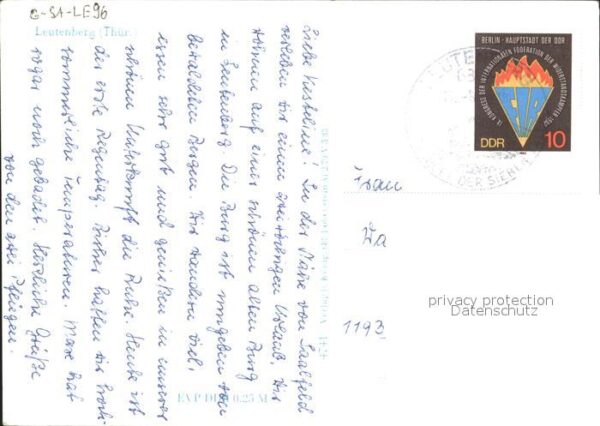 G-SA-LE96
Leutenberg (Thür.)
Liebe Karoline! In der Nähe von Saalfeld
verleben wir einen zweiwöchigen Urlaub. Wir
wohnen auf einer schönen alten Burg
in Leutenberg. Die Burg ist umgeben von
bewaldeten Bergen. Wir wandern viel,
essen sehr gut und genießen in unserer
schönen Unterkunft die Ruhe. Heute ist
der erste Regentag. Bisher hatten wir hoch-
sommerliche Temperaturen. Maxe hat
sogar noch gebadet. Herzliche Grüße
von den zwei
EVP DDR 0,25 M
BERLIN - HAUPTSTADT DER DDR
IX. KONGRESS DER INTERNATIONALEN FÖDERATION DER WIDERSTANDSKÄMPFER 1982
DDR
10
LEUTE
DER SIEBEN
Frau
Wa
1193
privacy protection
Datenschutz